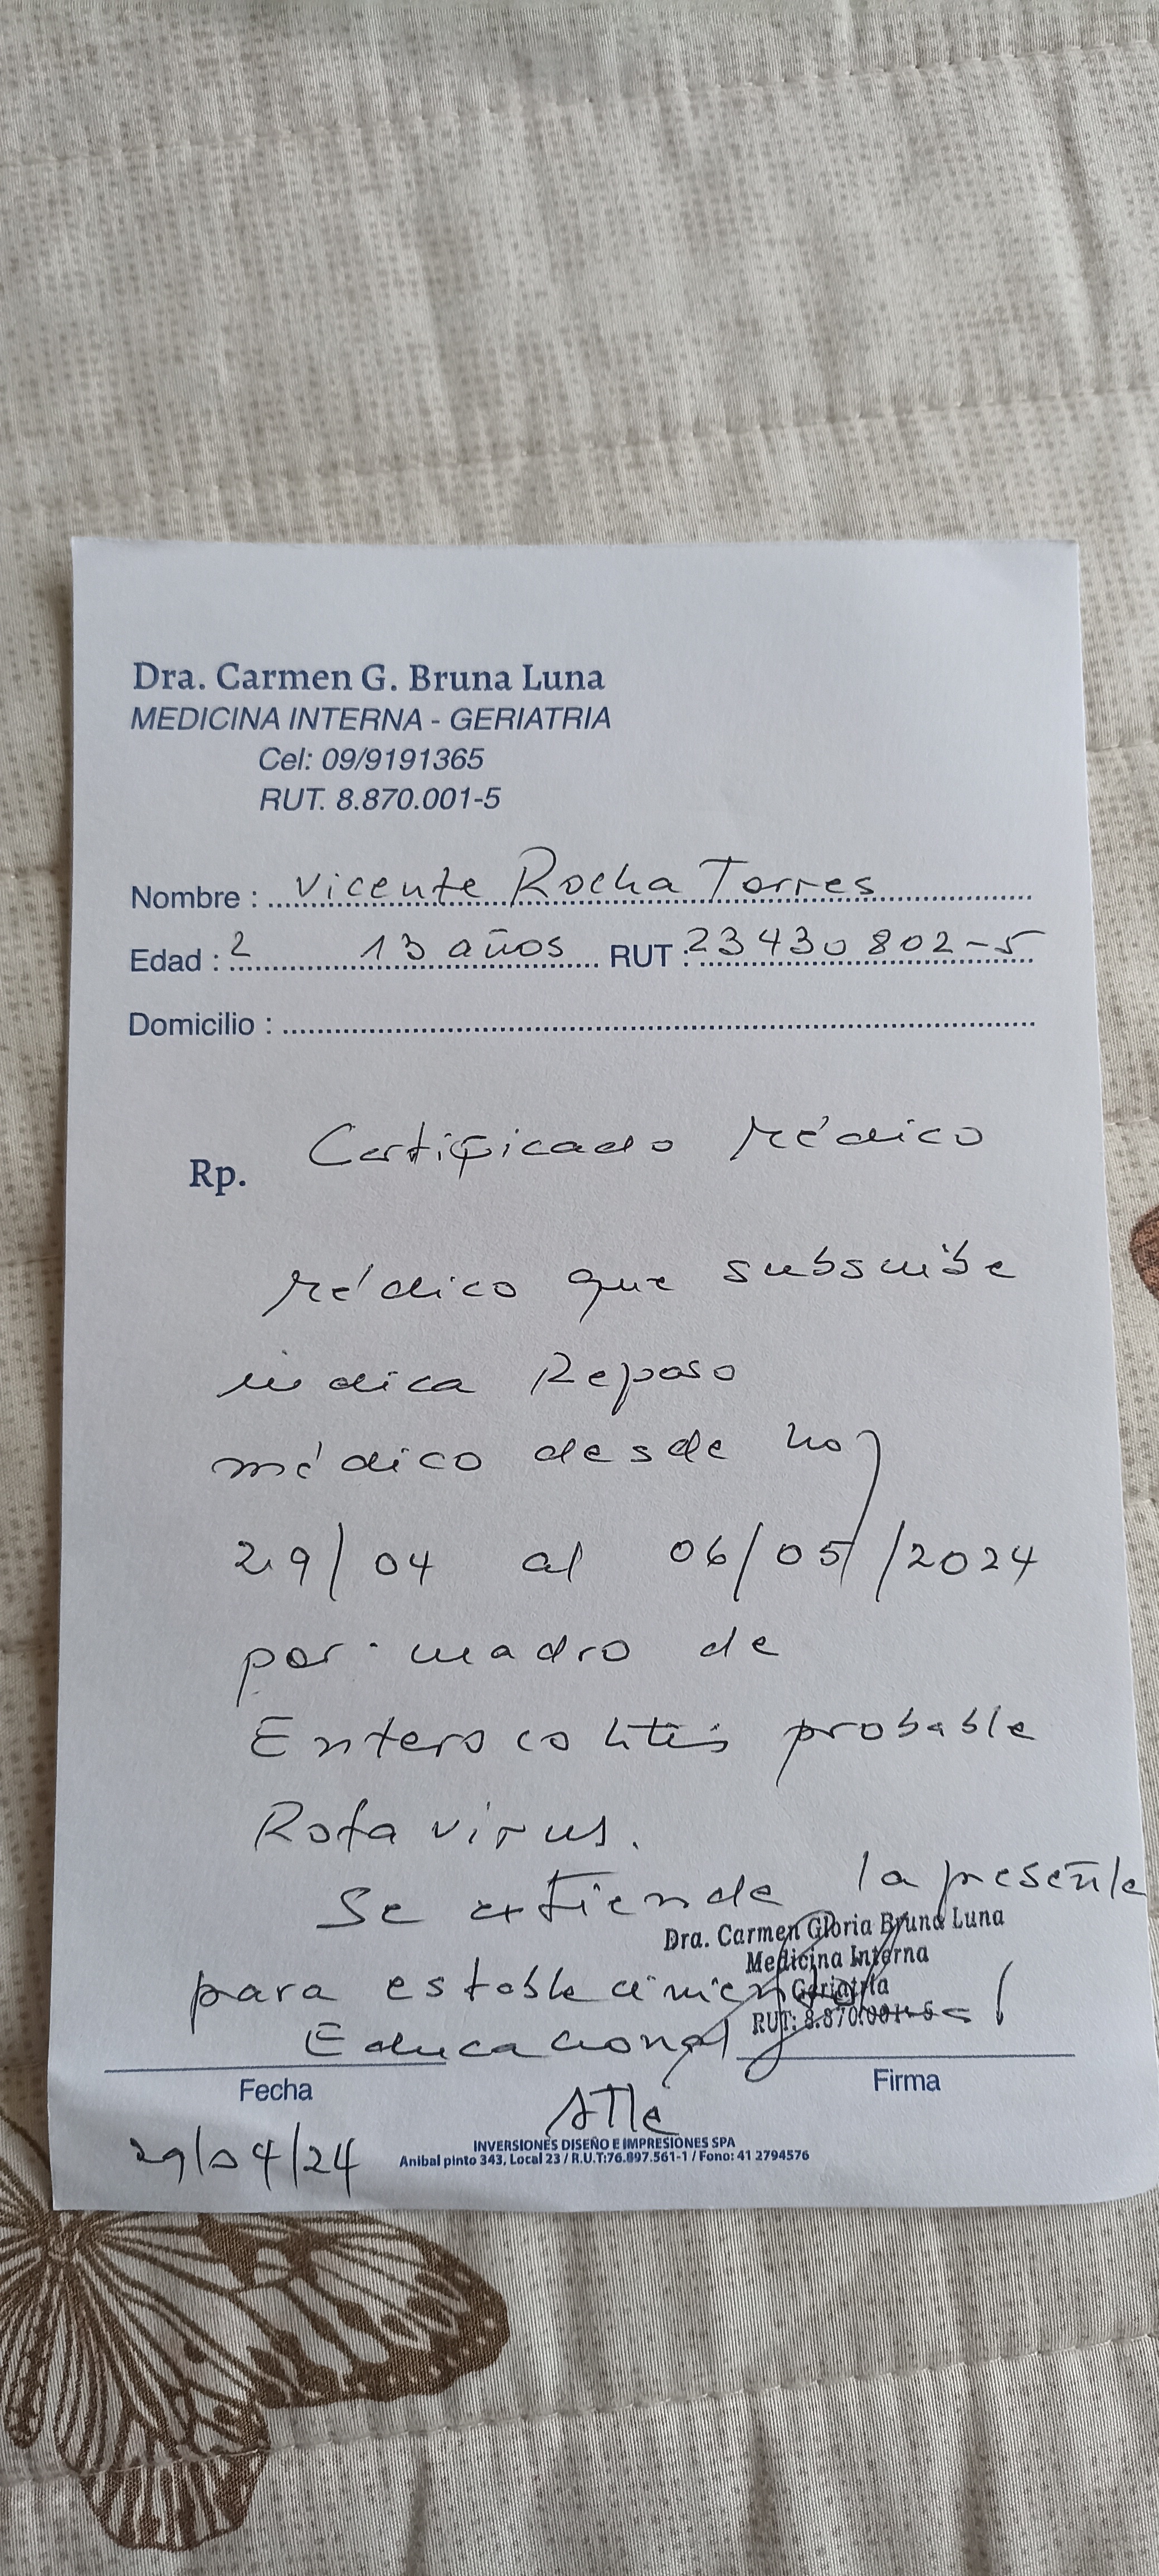 Dra. Carmen G. Bruna Luna
MEDICINA INTERNA - GERIATRIA
Cel: 09/9191365
RUT. 8.870.001-5
Nombre : Vicente Rocha Torres
Edad : 2 13 años RUT : 23430802-5
Domicilio :
Rp. Certificado Médico
Médico que subscribe
indica Reposo
médico desde hoy
29/04 al 06/05/2024
por cuadro de
Enterocolitis probable
Rotavirus.
Se extiende la presente
Dra. Carmen Gloria Bruna Luna
Medicina Interna
Geriatria
RUT: 8.870.001-5
para establecimiento
Educacional
Fecha
Firma
Atte
29/04/24
INVERSIONES DISEÑO E IMPRESIONES SPA
Anibal pinto 343, Local 23 / R.U.T:76.897.561-1 / Fono: 41 2794576